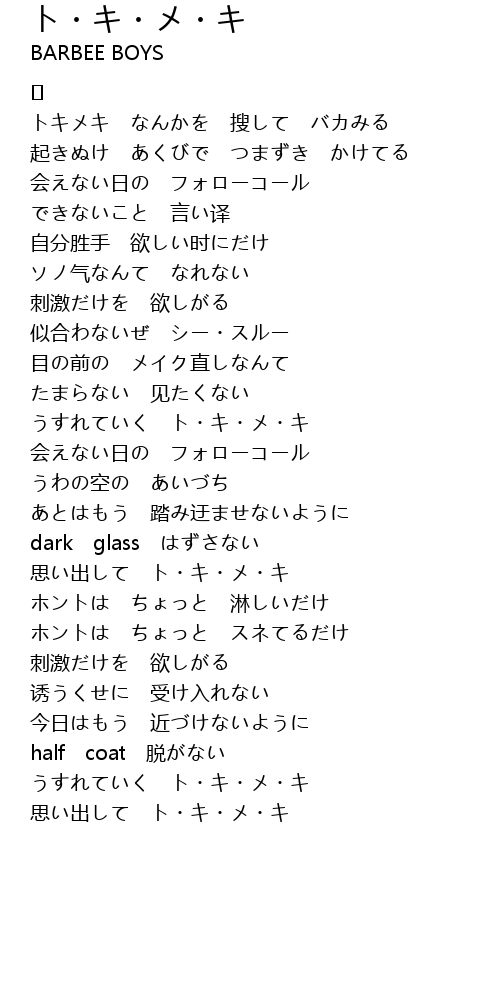 ト・キ・メ・キ
BARBEE BOYS
トキメキ　なんかを　搜して　バカみる
起きぬけ　あくびで　つまずき　かけてる
会えない日の　フォローコール
できないこと　言い译
自分胜手　欲しい时にだけ
ソノ气なんて　なれない
刺激だけを　欲しがる
似合わないぜ　シー・スルー
目の前の　メイク直しなんて
たまらない　见たくない
うすれていく　ト・キ・メ・キ
会えない日の　フォローコール
うわの空の　あいづち
あとはもう　踏み迂ませないように
dark　glass　はずさない
思い出して　ト・キ・メ・キ
ホントは　ちょっと　淋しいだけ
ホントは　ちょっと　スネてるだけ
刺激だけを　欲しがる
诱うくせに　受け入れない
今日はもう　近づけないように
half　coat　脱がない
うすれていく　ト・キ・メ・キ
思い出して　ト・キ・メ・キ